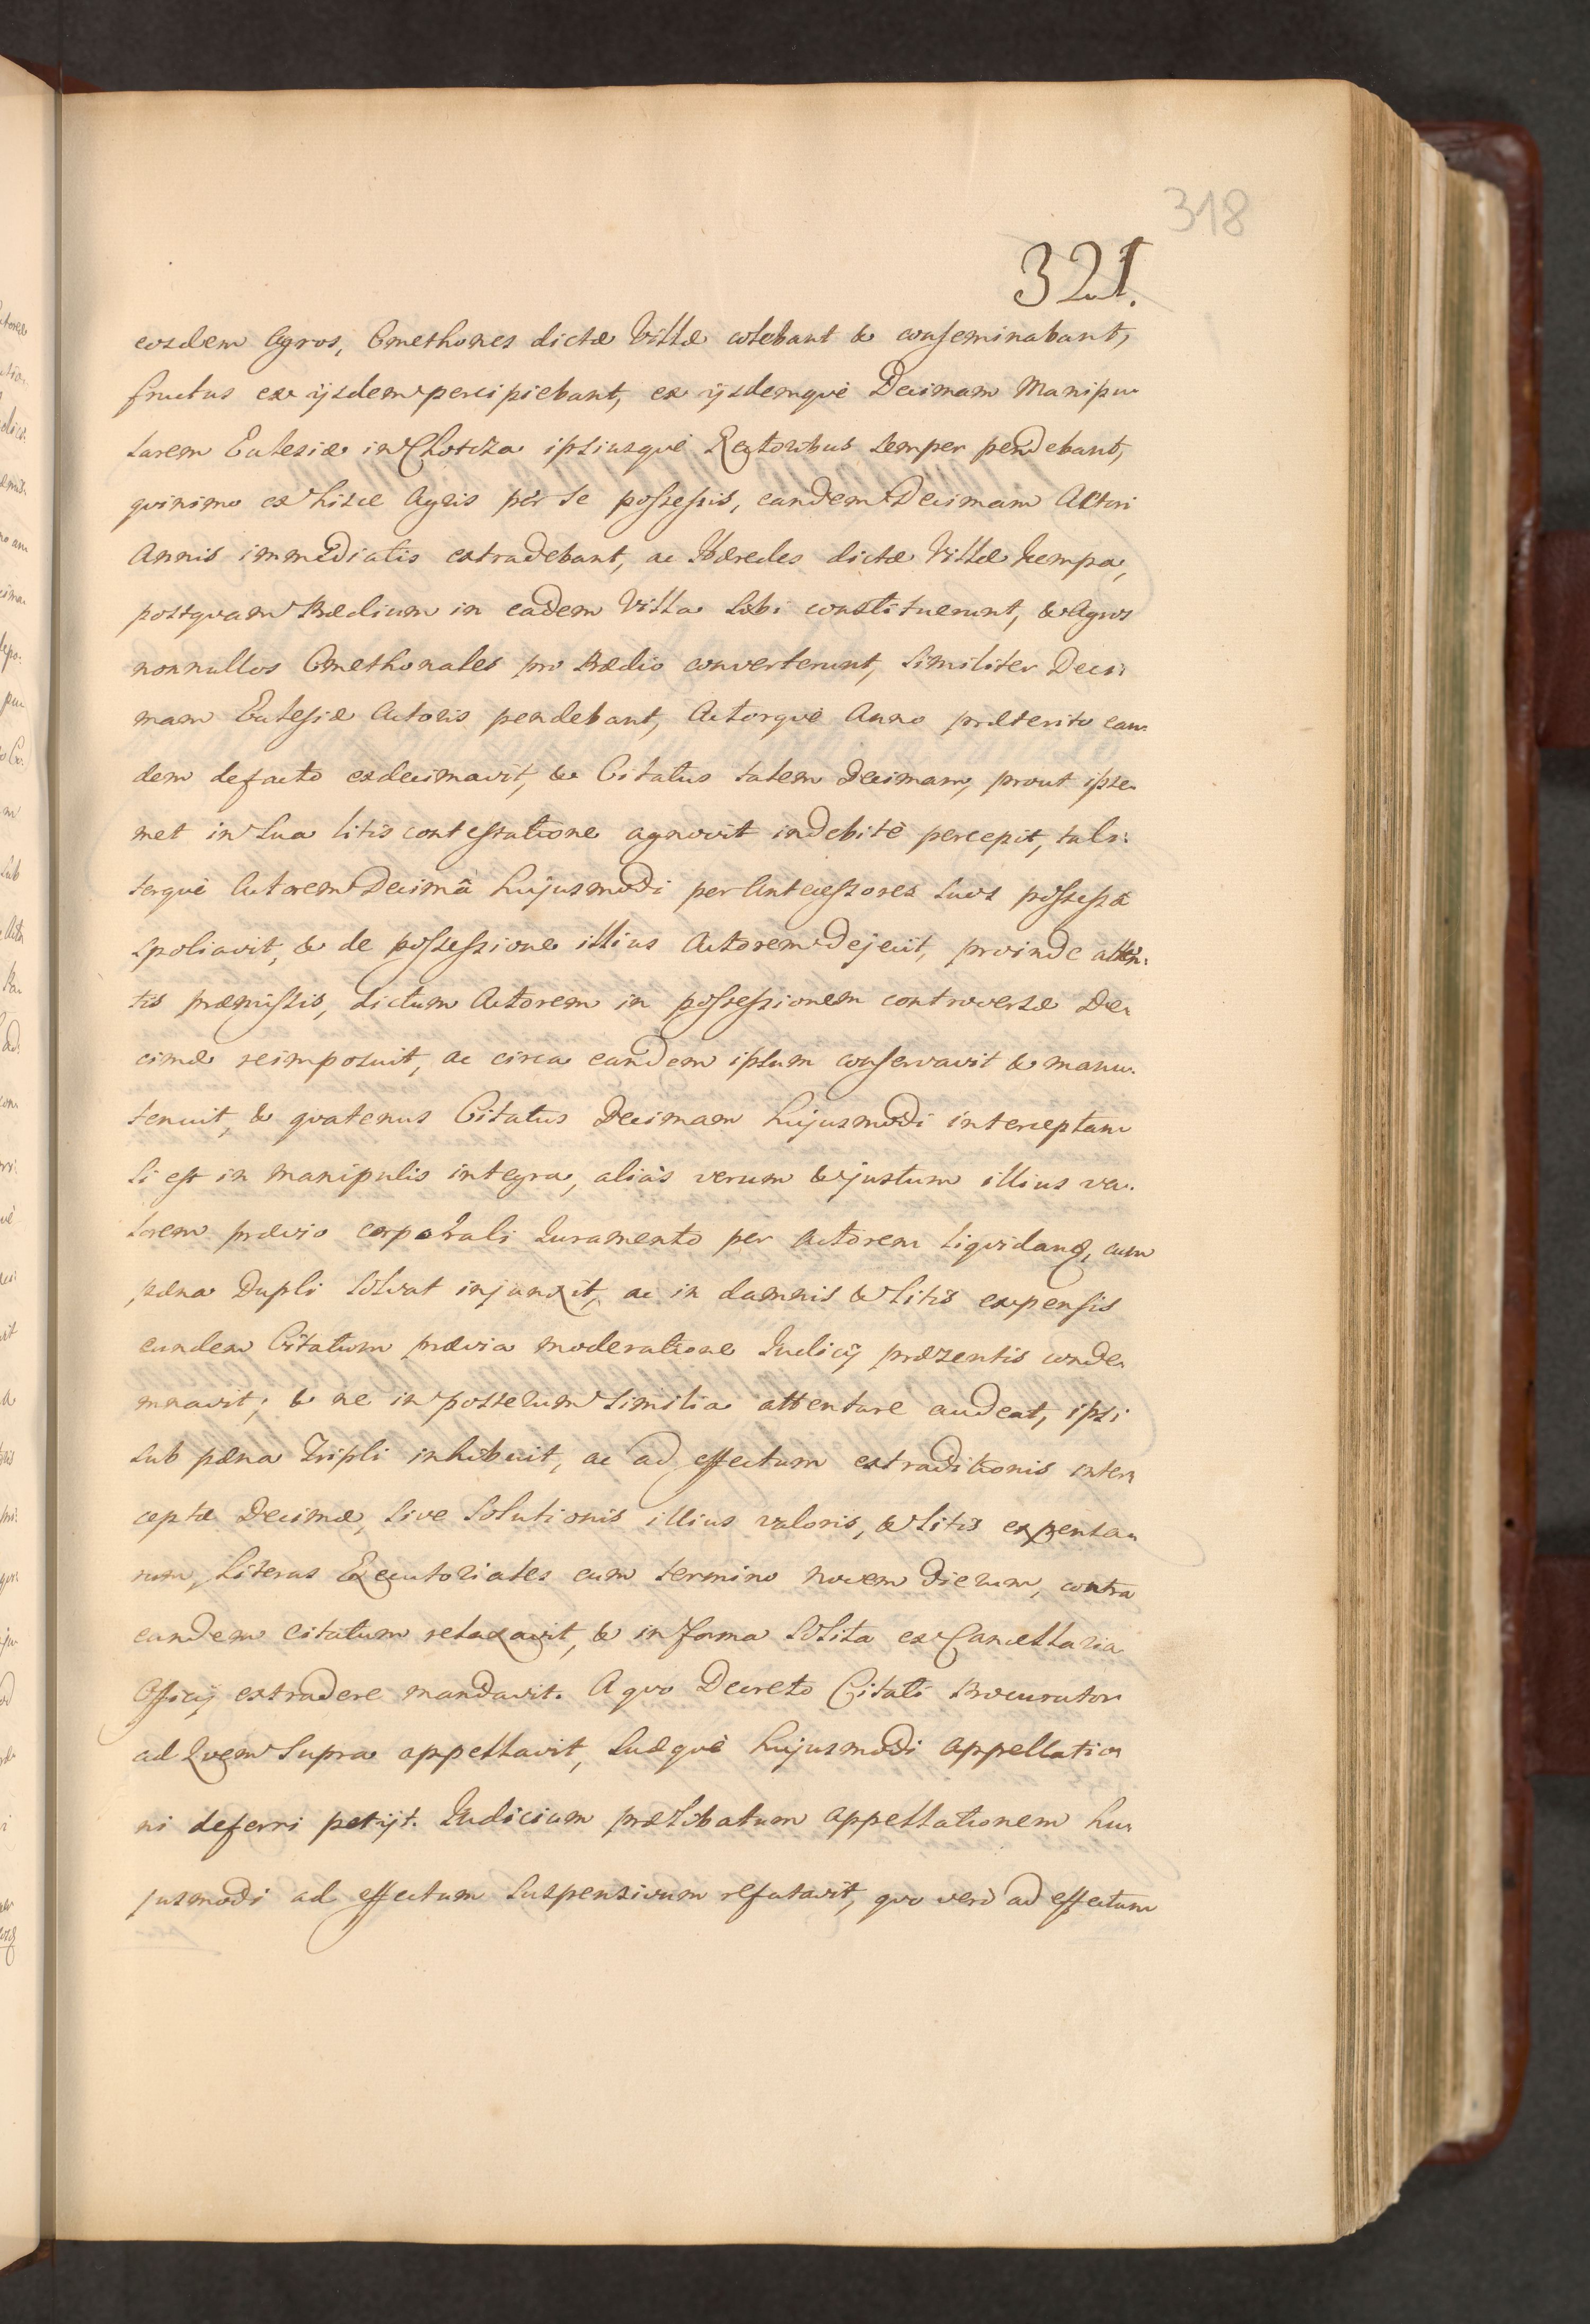 318
321.
eosdem Agros, Cmethones dictæ Villæ colebant & conseminabant,
fructus ex ijsdem percipiebant, ex ijsdemquè Decimam Manipu
larem Eclesiæ in Chotcza ipsiusquè Rectoribus semper pendebant,
quinimo ex hisce Agris per se possessis, eandem Decimam Actori
Annis immediatis extradebant, ac Hæredes dictæ Villæ Kempa,
postquam Prædium in eadem Villa sibi constituerunt, & Agros
nonnullos Cmethonales pro Prædio converterunt, similiter Deci:
mam Eclesiæ Actoris pendebant, Actorquè Anno præterito ean
dem defacto exdecimavit, & Citatus talem Decimam, prout ipse
met in sua litis contestatione agnovit indebitè percepit, tali:
terquè Actorem Decimâ hujusmodi per Antecessores suos possessâ
spoliavit, & de possessione illius Actorem dejecit, proinde atten:
tis præmissis, dictum Actorem in possessionem controversæ De
cimæ reimposuit, ac circa eandem ipsum conservavit & manu
tenuit, & quatenus Citatus Decimam hujusmodi interceptam
si est in manipulis integra, aliàs verum & justum illius va
lorem prævio corporali Iuramento per Actorem liquidand, cum
pæna Dupli solvat injunxit, ac in damnis & litis expensis
eundem Citatum prævia moderatione Iudicij præsentis conde
mnavit; & ne in posterum similia attentare audeat, ipsi
sub pæna Tripli inhibuit, ac ad effectum extraditionis inter
ceptæ Decimæ, sive solutionis illius valoris, & litis expensa
rum, Literas Executoriales cum termino novem dierum, contra
eundem citatum relaxavit, & in forma solita ex Cancellaria
Officij extradere mandavit. A quo Decreto Citati Procurator
ad Quem supra appellavit, suæquè hujusmodi appellatio
ni deferri petijt. Iudicium prælibatum appellationem hu
jusmodi ad effectum suspensivum refutavit, quo verò ad effectum